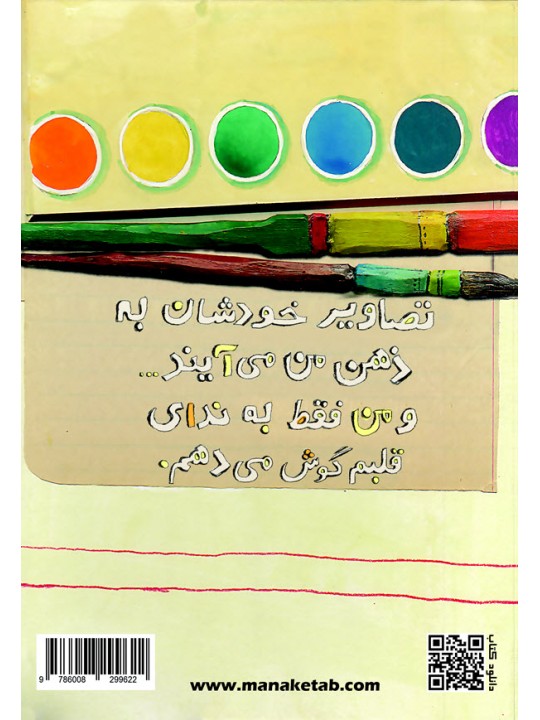 تصاویر خودشان به
ذهن من می‌آیند...
و من فقط به ندای
قلبم گوش می‌دهم.
دانلود کتاب
9 786008 299622
www.manaketab.com